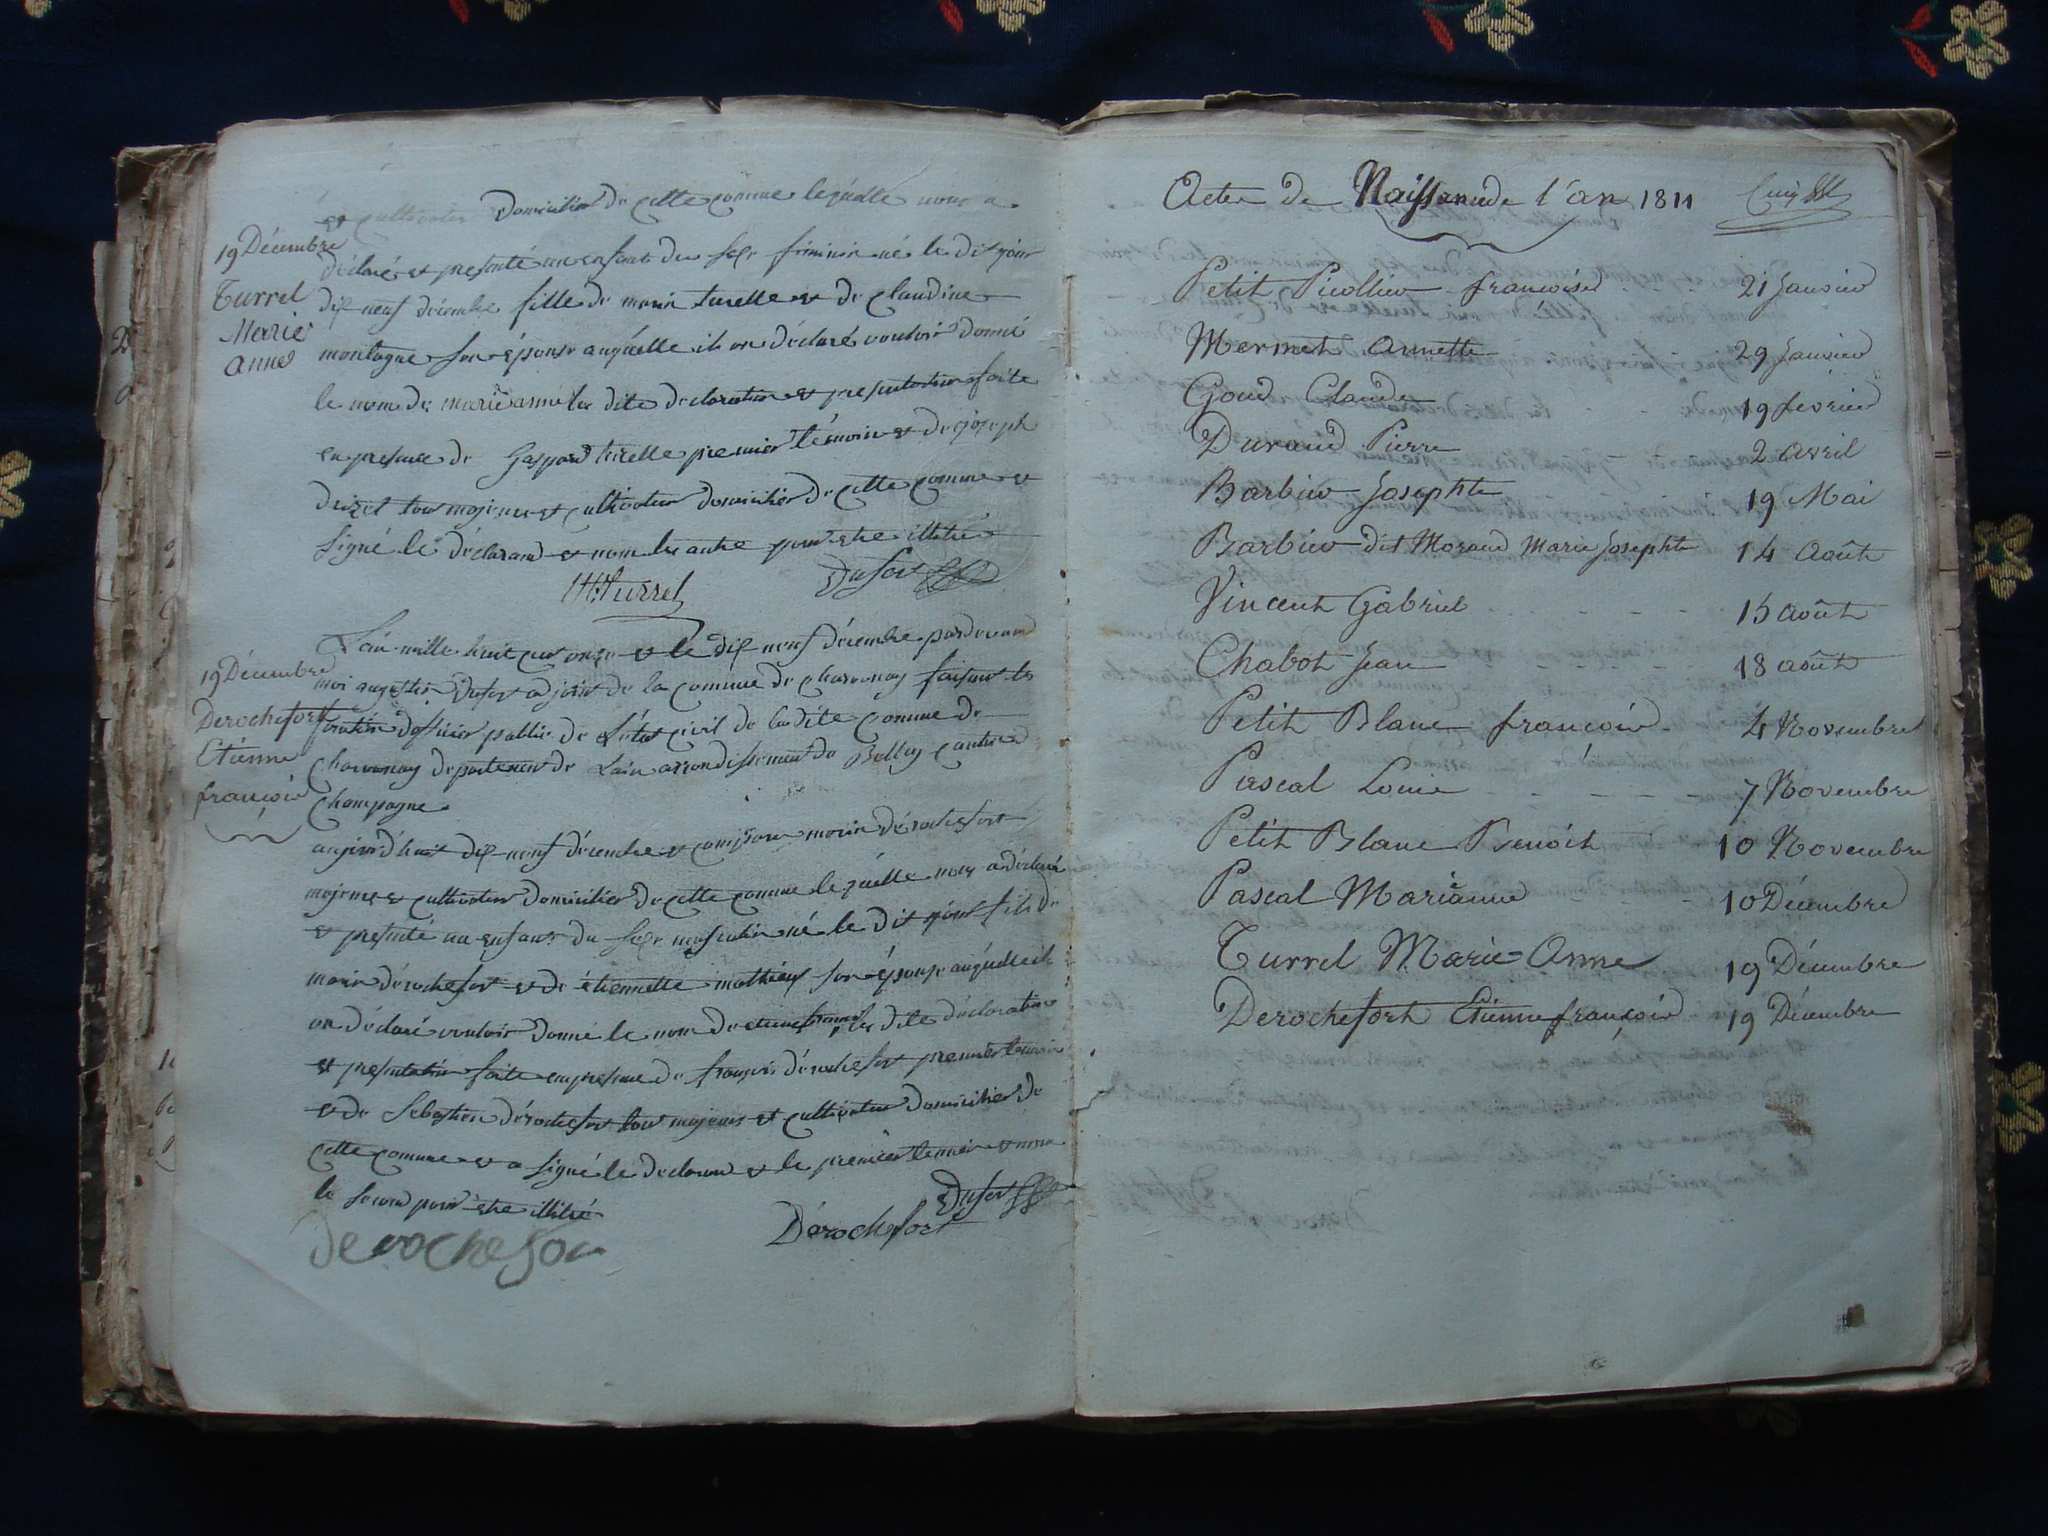 et cultivateur Domicilier de cette comune lequelle nous a
19 Décembre
Turrel
Marie
Anne
déclaré et presenté un enfant du sexe feminin né le dit jour
dix neuf décembre fille de morin turelle et de claudine
montagne son épouse auquelle il on déclaré vouloir donné
le nom de marie anne les dite declaration et presentation faite
en presence de Gaspard turelle premier témoin et de joseph
tous majeurs et cultivateur domicilier de cette comune et
signé le déclarand et nom les autre pour etre illitré
Turrel Dufort
19 Décembre
Derochefort
Etienne
françois
L'an mille huit cent onze et le dix neuf décembre pardevand
moi augustin Dufort adjoint de la comune de chavornay faisant les
fonction d'officier public de L'état civil de la dite comune de
chavornay departement de Lain arrondissement de Belley canton de
champagne
aujourd'hui dix neuf décembre et comparu morin dérochefort
majeur et cultivateur domicilier de cette comune lequelle nous a déclaré
et presenté un enfant du sexe masculin né le dit jour fils de
morin dérochefort et de étiennette mathieu son épouse auquelle il
on déclaré vouloir donné le nom de etienne françois les dite déclaration
et presentation faite en presence de françois dérochefort premier temoin
et de Sebastien dérochefort tous majeurs et cultivateur domicilier de
cette comune et a signé le declarand et le premier temoin et nom
le second pour être illitré
Dufort
Derochefort
derochefor
Acte de Naissance de l'an 1811
Petit Picollier françoise 21 Janvier
Mermet Annette 29 Janvier
Goud Claude 19 fevrier
Durand Pierre 2 avril
Barbier Josephte 19 Mai
Barbier dit Moraud Marie Josephte 14 Août
Vincent Gabriel 15 août
Chabot Jean 18 août
Petit Blanc françois 4 Novembre
Pascal Louis 7 Novembre
Petit Blanc Benoît 10 Novembre
Pascal Marianne 10 Décembre
Turrel Marie=Anne 19 Décembre
Derochefort Etienne françois 19 Décembre